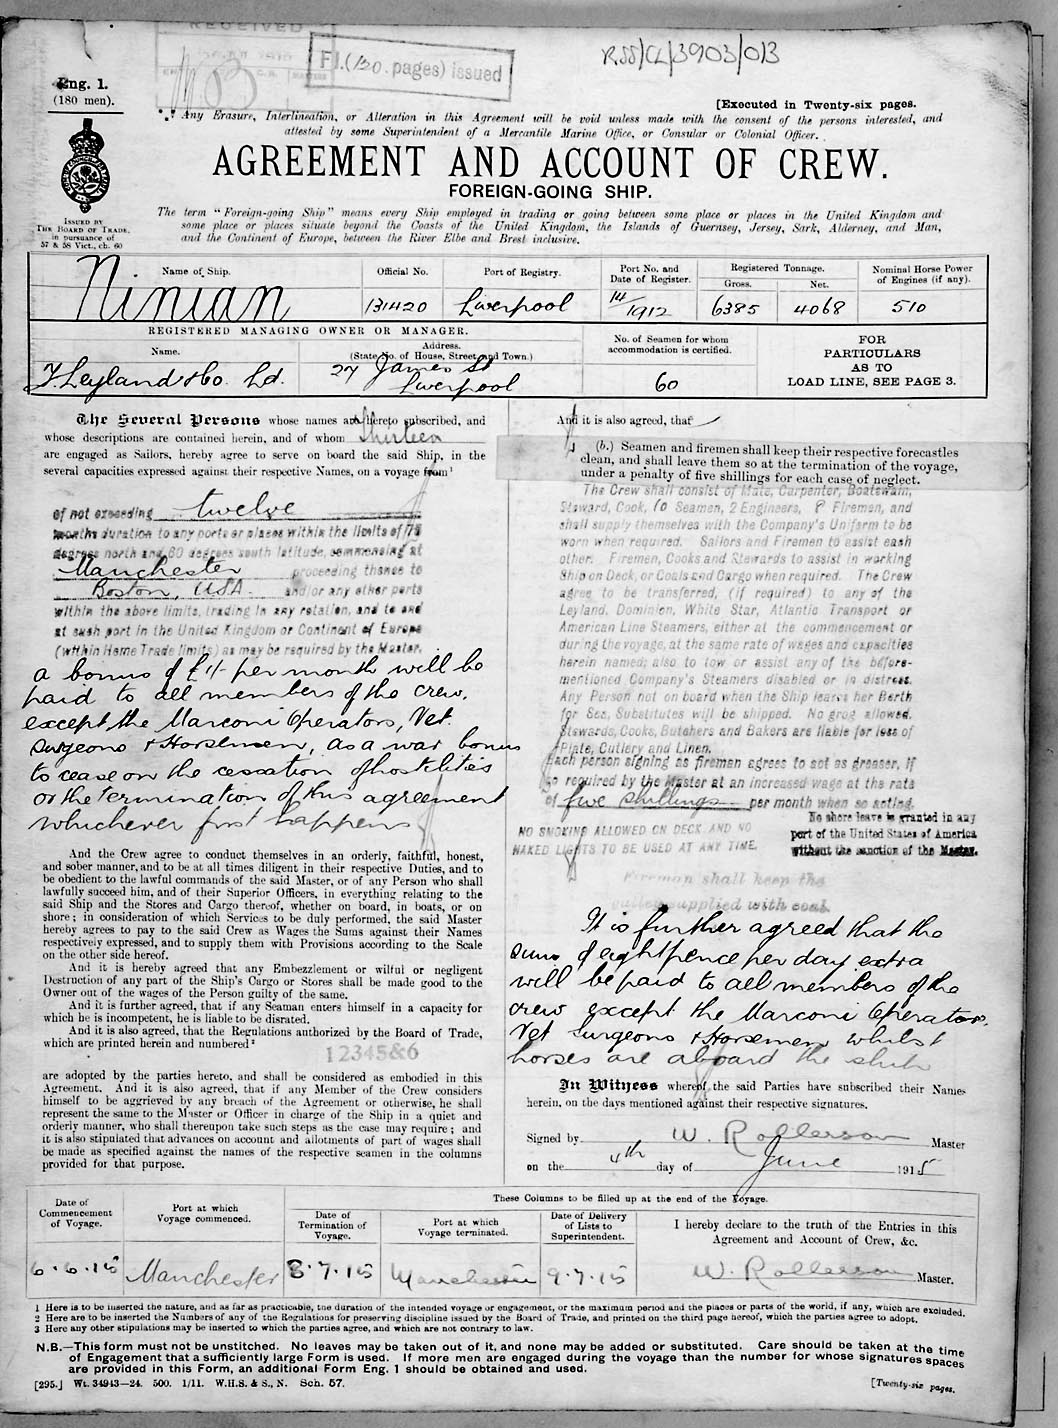 RECEIVED
F I.(130. pages) issued
RSS/CL/3903/013
Eng. 1.
(180 men).
[Executed in Twenty-six pages.
Any Erasure, Interlineation, or Alteration in this Agreement will be void unless made with the consent of the persons interested, and
attested by some Superintendent of a Mercantile Marine Office, or Consular or Colonial Officer.
AGREEMENT AND ACCOUNT OF CREW.
FOREIGN-GOING SHIP.
ISSUED BY
THE BOARD OF TRADE,
in pursuance of
57 & 58 Vict., ch. 60
The term "Foreign-going Ship" means every Ship employed in trading or going between some place or places in the United Kingdom and
some place or places situate beyond the Coasts of the United Kingdom, the Islands of Guernsey, Jersey, Sark, Alderney, and Man,
and the Continent of Europe, between the River Elbe and Brest inclusive.
Name of Ship.
Official No.
Port of Registry.
Port No. and
Date of Register.
Registered Tonnage.
Gross.
Net.
Nominal Horse Power
of Engines (if any).
Ninian
131420
Liverpool
14/1912
6385
4068
510
REGISTERED MANAGING OWNER OR MANAGER.
Name.
Address.
(State No. of House, Street, and Town.)
No. of Seamen for whom
accommodation is certified.
FOR
PARTICULARS
AS TO
LOAD LINE, SEE PAGE 3.
F. Leyland & Co. Ld.
27 James St
Liverpool
60
The Several Persons whose names are hereto subscribed, and
whose descriptions are contained herein, and of whom thirteen
are engaged as Sailors, hereby agree to serve on board the said Ship, in the
several capacities expressed against their respective Names, on a voyage from¹
of not exceeding twelve
months duration to any ports or places within the limits of 75
degrees north and 60 degrees south latitude, commencing at
Manchester proceeding thence to
Boston, USA. and/or any other ports
within the above limits, trading in any rotation, and to end
at such port in the United Kingdom or Continent of Europe
(within Home Trade limits) as may be required by the Master.
a bonus of £1/- per month will be
paid to all members of the crew,
except the Marconi Operators, Vet.
Surgeons & Horsemen, as a war bonus
to cease on the cessation of hostilities
or the termination of this agreement
whichever first happens
And the Crew agree to conduct themselves in an orderly, faithful, honest,
and sober manner, and to be at all times diligent in their respective Duties, and to
be obedient to the lawful commands of the said Master, or of any Person who shall
lawfully succeed him, and of their Superior Officers, in everything relating to the
said Ship and the Stores and Cargo thereof, whether on board, in boats, or on
shore; in consideration of which Services to be duly performed, the said Master
hereby agrees to pay to the said Crew as Wages the Sums against their Names
respectively expressed, and to supply them with Provisions according to the Scale
on the other side hereof.
And it is hereby agreed that any Embezzlement or wilful or negligent
Destruction of any part of the Ship's Cargo or Stores shall be made good to the
Owner out of the wages of the Person guilty of the same.
And it is further agreed, that if any Seaman enters himself in a capacity for
which he is incompetent, he is liable to be disrated.
And it is also agreed, that the Regulations authorized by the Board of Trade,
which are printed herein and numbered²
12345&6
are adopted by the parties hereto, and shall be considered as embodied in this
Agreement. And it is also agreed, that if any Member of the Crew considers
himself to be aggrieved by any breach of the Agreement or otherwise, he shall
represent the same to the Master or Officer in charge of the Ship in a quiet and
orderly manner, who shall thereupon take such steps as the case may require; and
it is also stipulated that advances on account and allotments of part of wages shall
be made as specified against the names of the respective seamen in the columns
provided for that purpose.
And it is also agreed, that³
(b.) Seamen and firemen shall keep their respective forecastles
clean, and shall leave them so at the termination of the voyage,
under a penalty of five shillings for each case of neglect.
The Crew shall consist of Mate, Carpenter, Boatswain,
Steward, Cook, 10 Seamen, 2 Engineers, 8 Firemen, and
shall supply themselves with the Company's Uniform to be
worn when required. Sailors and Firemen to assist each
other. Firemen, Cooks and Stewards to assist in working
Ship on Deck, or Coals and Cargo when required. The Crew
agree to be transferred, (if required) to any of the
Leyland, Dominion, White Star, Atlantic Transport or
American Line Steamers, either at the commencement or
during the voyage, at the same rate of wages and capacities
herein named; also to tow or assist any of the before-
mentioned Company's Steamers disabled or in distress.
Any Person not on board when the Ship leaves her Berth
for Sea, Substitutes will be shipped. No grog allowed.
Stewards, Cooks, Butchers and Bakers are liable for loss of
Plate, Cutlery and Linen.
Each person signing as fireman agrees to act as greaser, if
so required by the Master at an increased wage at the rate
of five shillings per month when so acting.
No shore leave is granted in any
port of the United States of America
without the sanction of the Master.
NO SMOKING ALLOWED ON DECK AND NO
NAKED LIGHTS TO BE USED AT ANY TIME.
Fireman shall keep the
galley supplied with coal.
It is further agreed that the
sum of eightpence per day extra
will be paid to all members of the
crew except the Marconi Operators,
Vet Surgeons & Horsemen whilst
horses are aboard the ship
In Witness whereof the said Parties have subscribed their Names
herein, on the days mentioned against their respective signatures.
Signed by W. Rollerson Master
on the 4th day of June 1915
These Columns to be filled up at the end of the Voyage.
Date of
Commencement
of Voyage.
Port at which
Voyage commenced.
Date of
Termination of
Voyage.
Port at which
Voyage terminated.
Date of Delivery
of Lists to
Superintendent.
I hereby declare to the truth of the Entries in this
Agreement and Account of Crew, &c.
6.6.15
Manchester
8.7.15
Manchester
9.7.15
W. Rollerson Master.
1 Here is to be inserted the nature, and as far as practicable, the duration of the intended voyage or engagement, or the maximum period and the places or parts of the world, if any, which are excluded.
2 Here are to be inserted the Numbers of any of the Regulations for preserving discipline issued by the Board of Trade, and printed on the third page hereof, which the parties agree to adopt.
3 Here any other stipulations may be inserted to which the parties agree, and which are not contrary to law.
N.B.—This form must not be unstitched. No leaves may be taken out of it, and none may be added or substituted. Care should be taken at the time
of Engagement that a sufficiently large Form is used. If more men are engaged during the voyage than the number for whose signatures spaces
are provided in this Form, an additional Form Eng. 1 should be obtained and used.
[295.] Wt. 34943—24. 500. 1/11. W.H.S. & S., N. Sch. 57.
[Twenty-six pages.